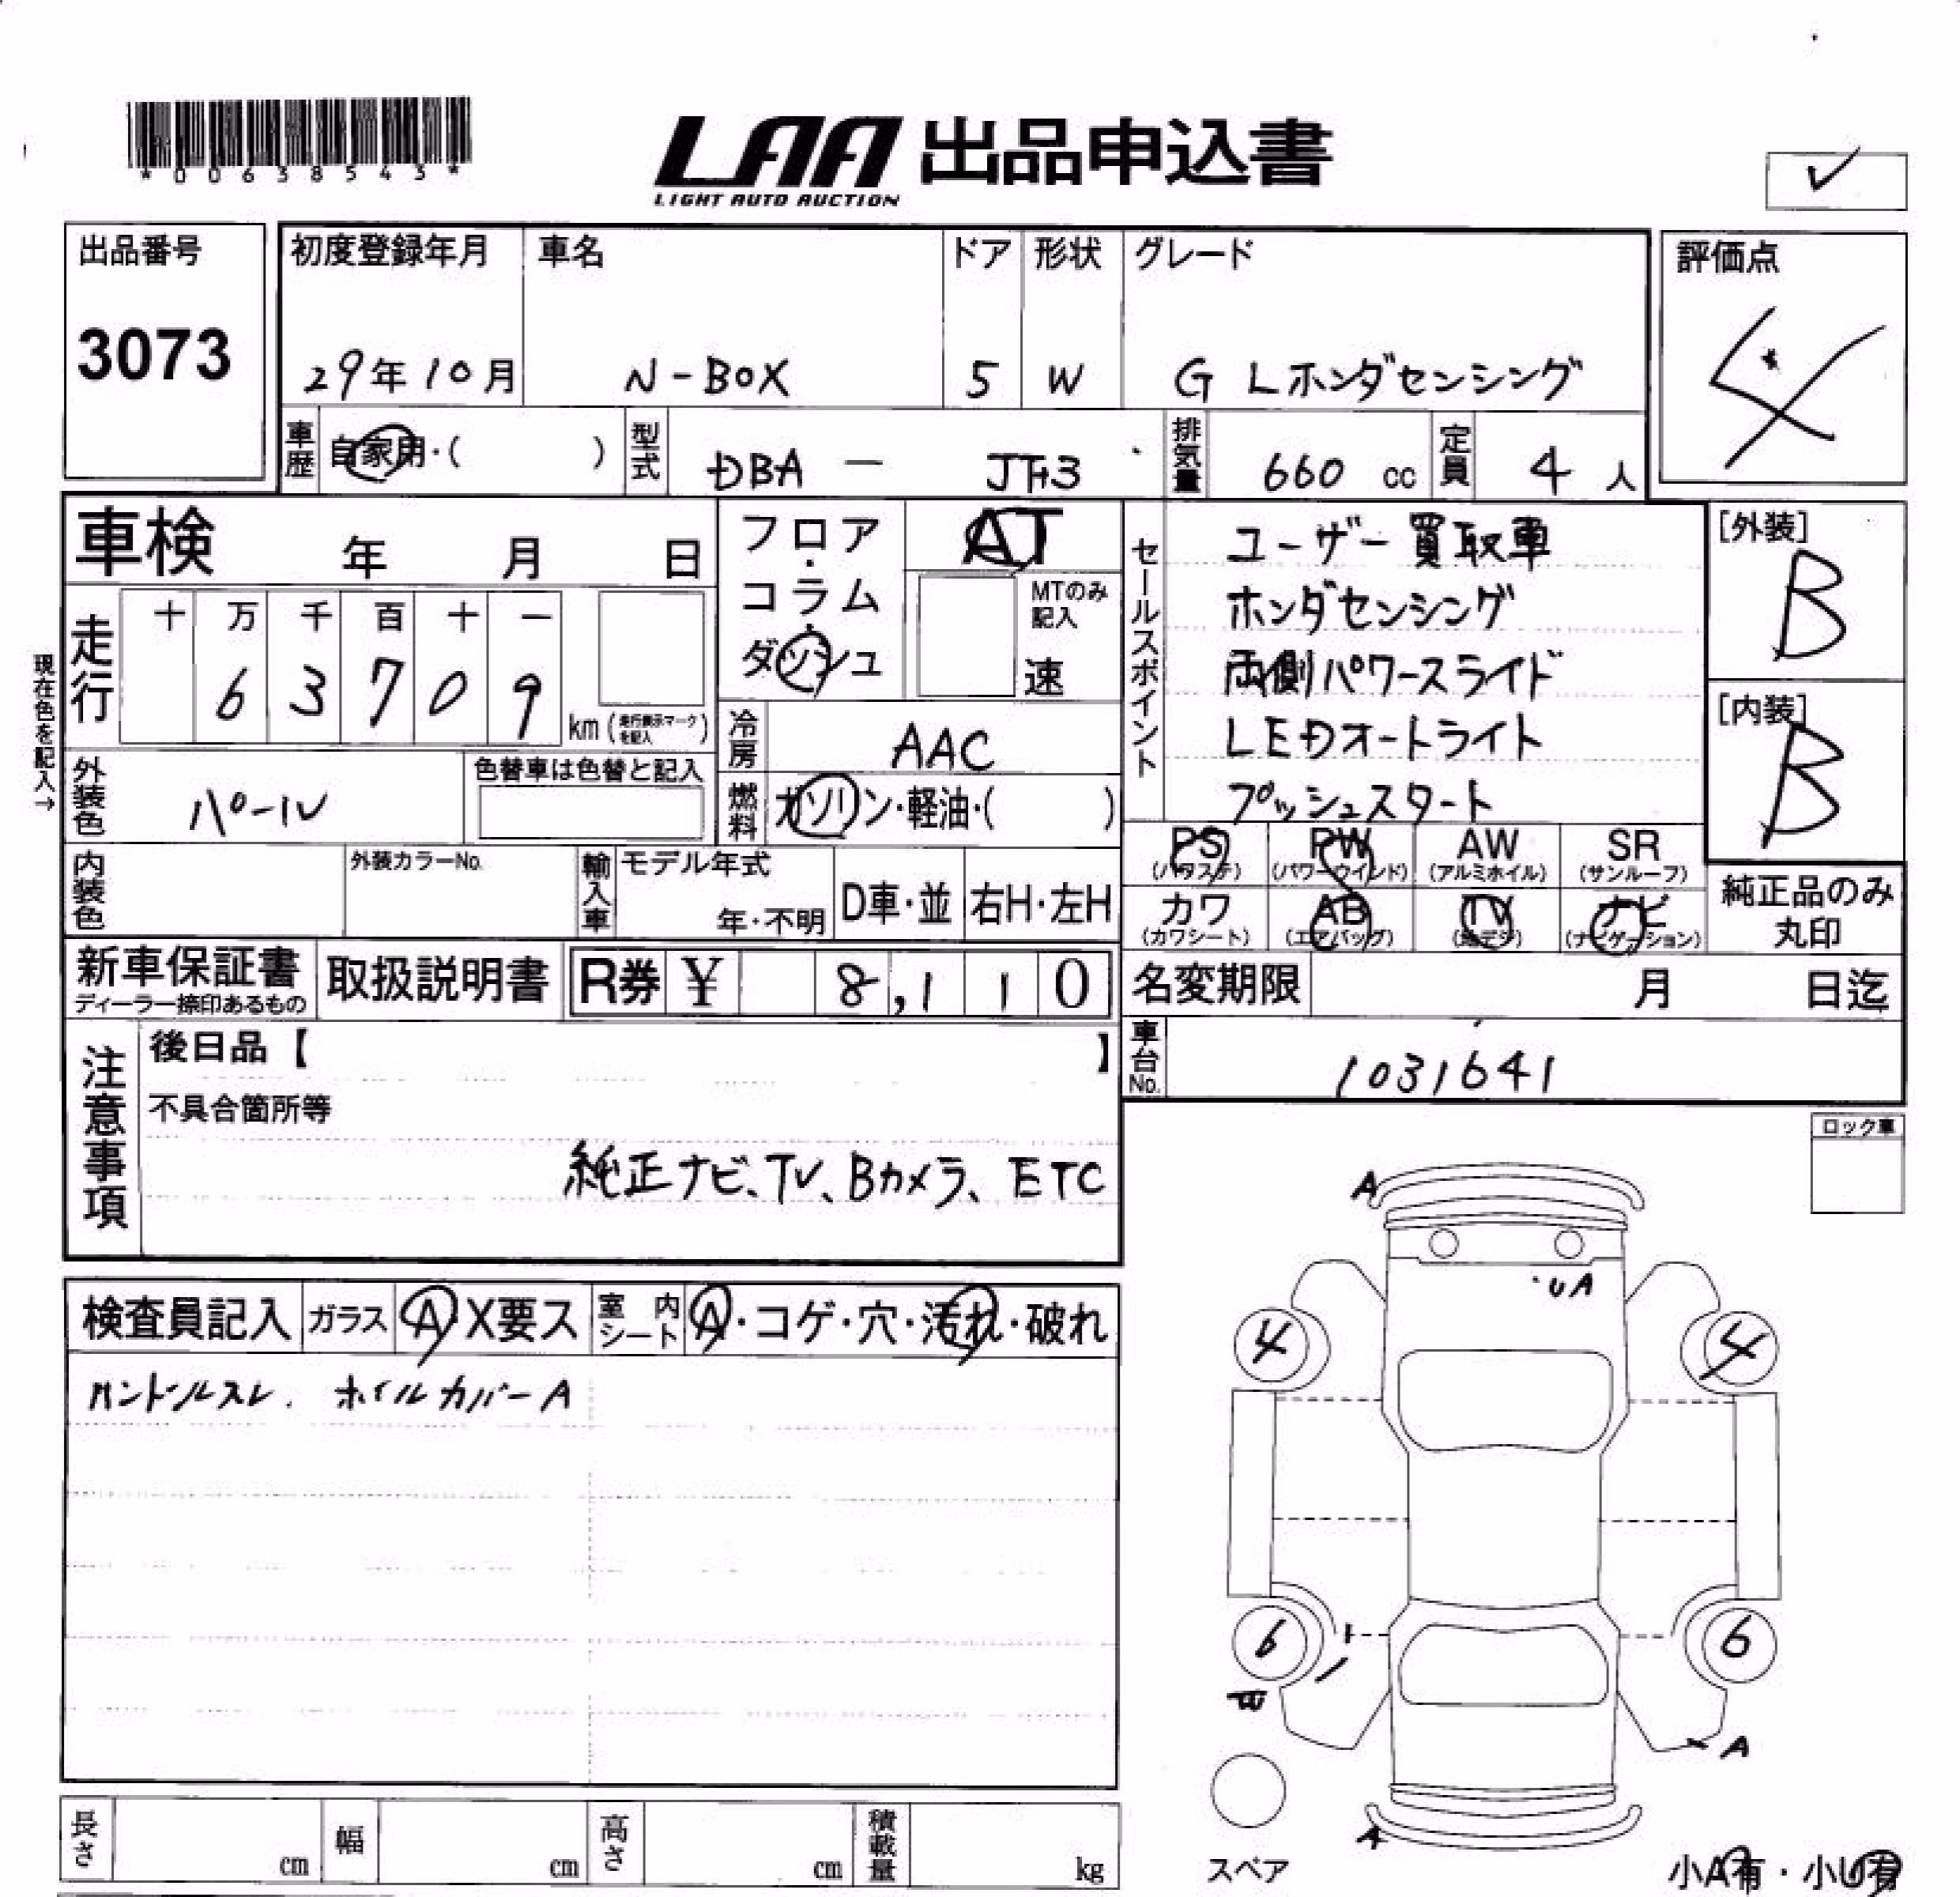 *00638543*
LAA 出品申込書
LIGHT AUTO AUCTION
出品番号
3073
初度登録年月
29年10月
車名
N-BOX
ドア
5
形状
W
グレード
G Lホンダセンシング
評価点
4
車歴
自家用・( )
型式
DBA - JF3
排気量
660 cc
定員
4 人
車検 年 月 日
フロア・コラム・ダッシュ
AT
MTのみ記入
速
現在色を記入→
走行
十 万 千 百 十 一
6 3 7 0 9
km (走行表示マークを記入)
冷房
AAC
外装色
パール
色替車は色替と記入
燃料
ガソリン・軽油・( )
セールスポイント
ユーザー買取車
ホンダセンシング
両側パワースライド
LEDオートライト
プッシュスタート
[外装]
B
[内装]
B
内装色
外装カラーNo.
輸入車
モデル年式
年・不明
D車・並
右H・左H
PS
(パワステ)
PW
(パワーウインド)
AW
(アルミホイル)
SR
(サンルーフ)
カワ
(カワシート)
AB
(エアバッグ)
TV
(地デジ)
ナビ
(ナビゲーション)
純正品のみ
丸印
新車保証書
ディーラー捺印あるもの
取扱説明書
R券 ¥ 8,110
名変期限 月 日迄
車台No.
1031641
注意事項
後日品【 】
不具合箇所等
純正ナビ、TV、Bカメラ、ETC
ロック車
検査員記入
ガラス
A X要ス
室内シート
A・コゲ・穴・汚れ・破れ
ハンドルスレ. ホイルカバーA
A
UA
4
4
6
6
A
A
スペア
小A有・小U有
長さ cm
幅 cm
高さ cm
積載量 kg